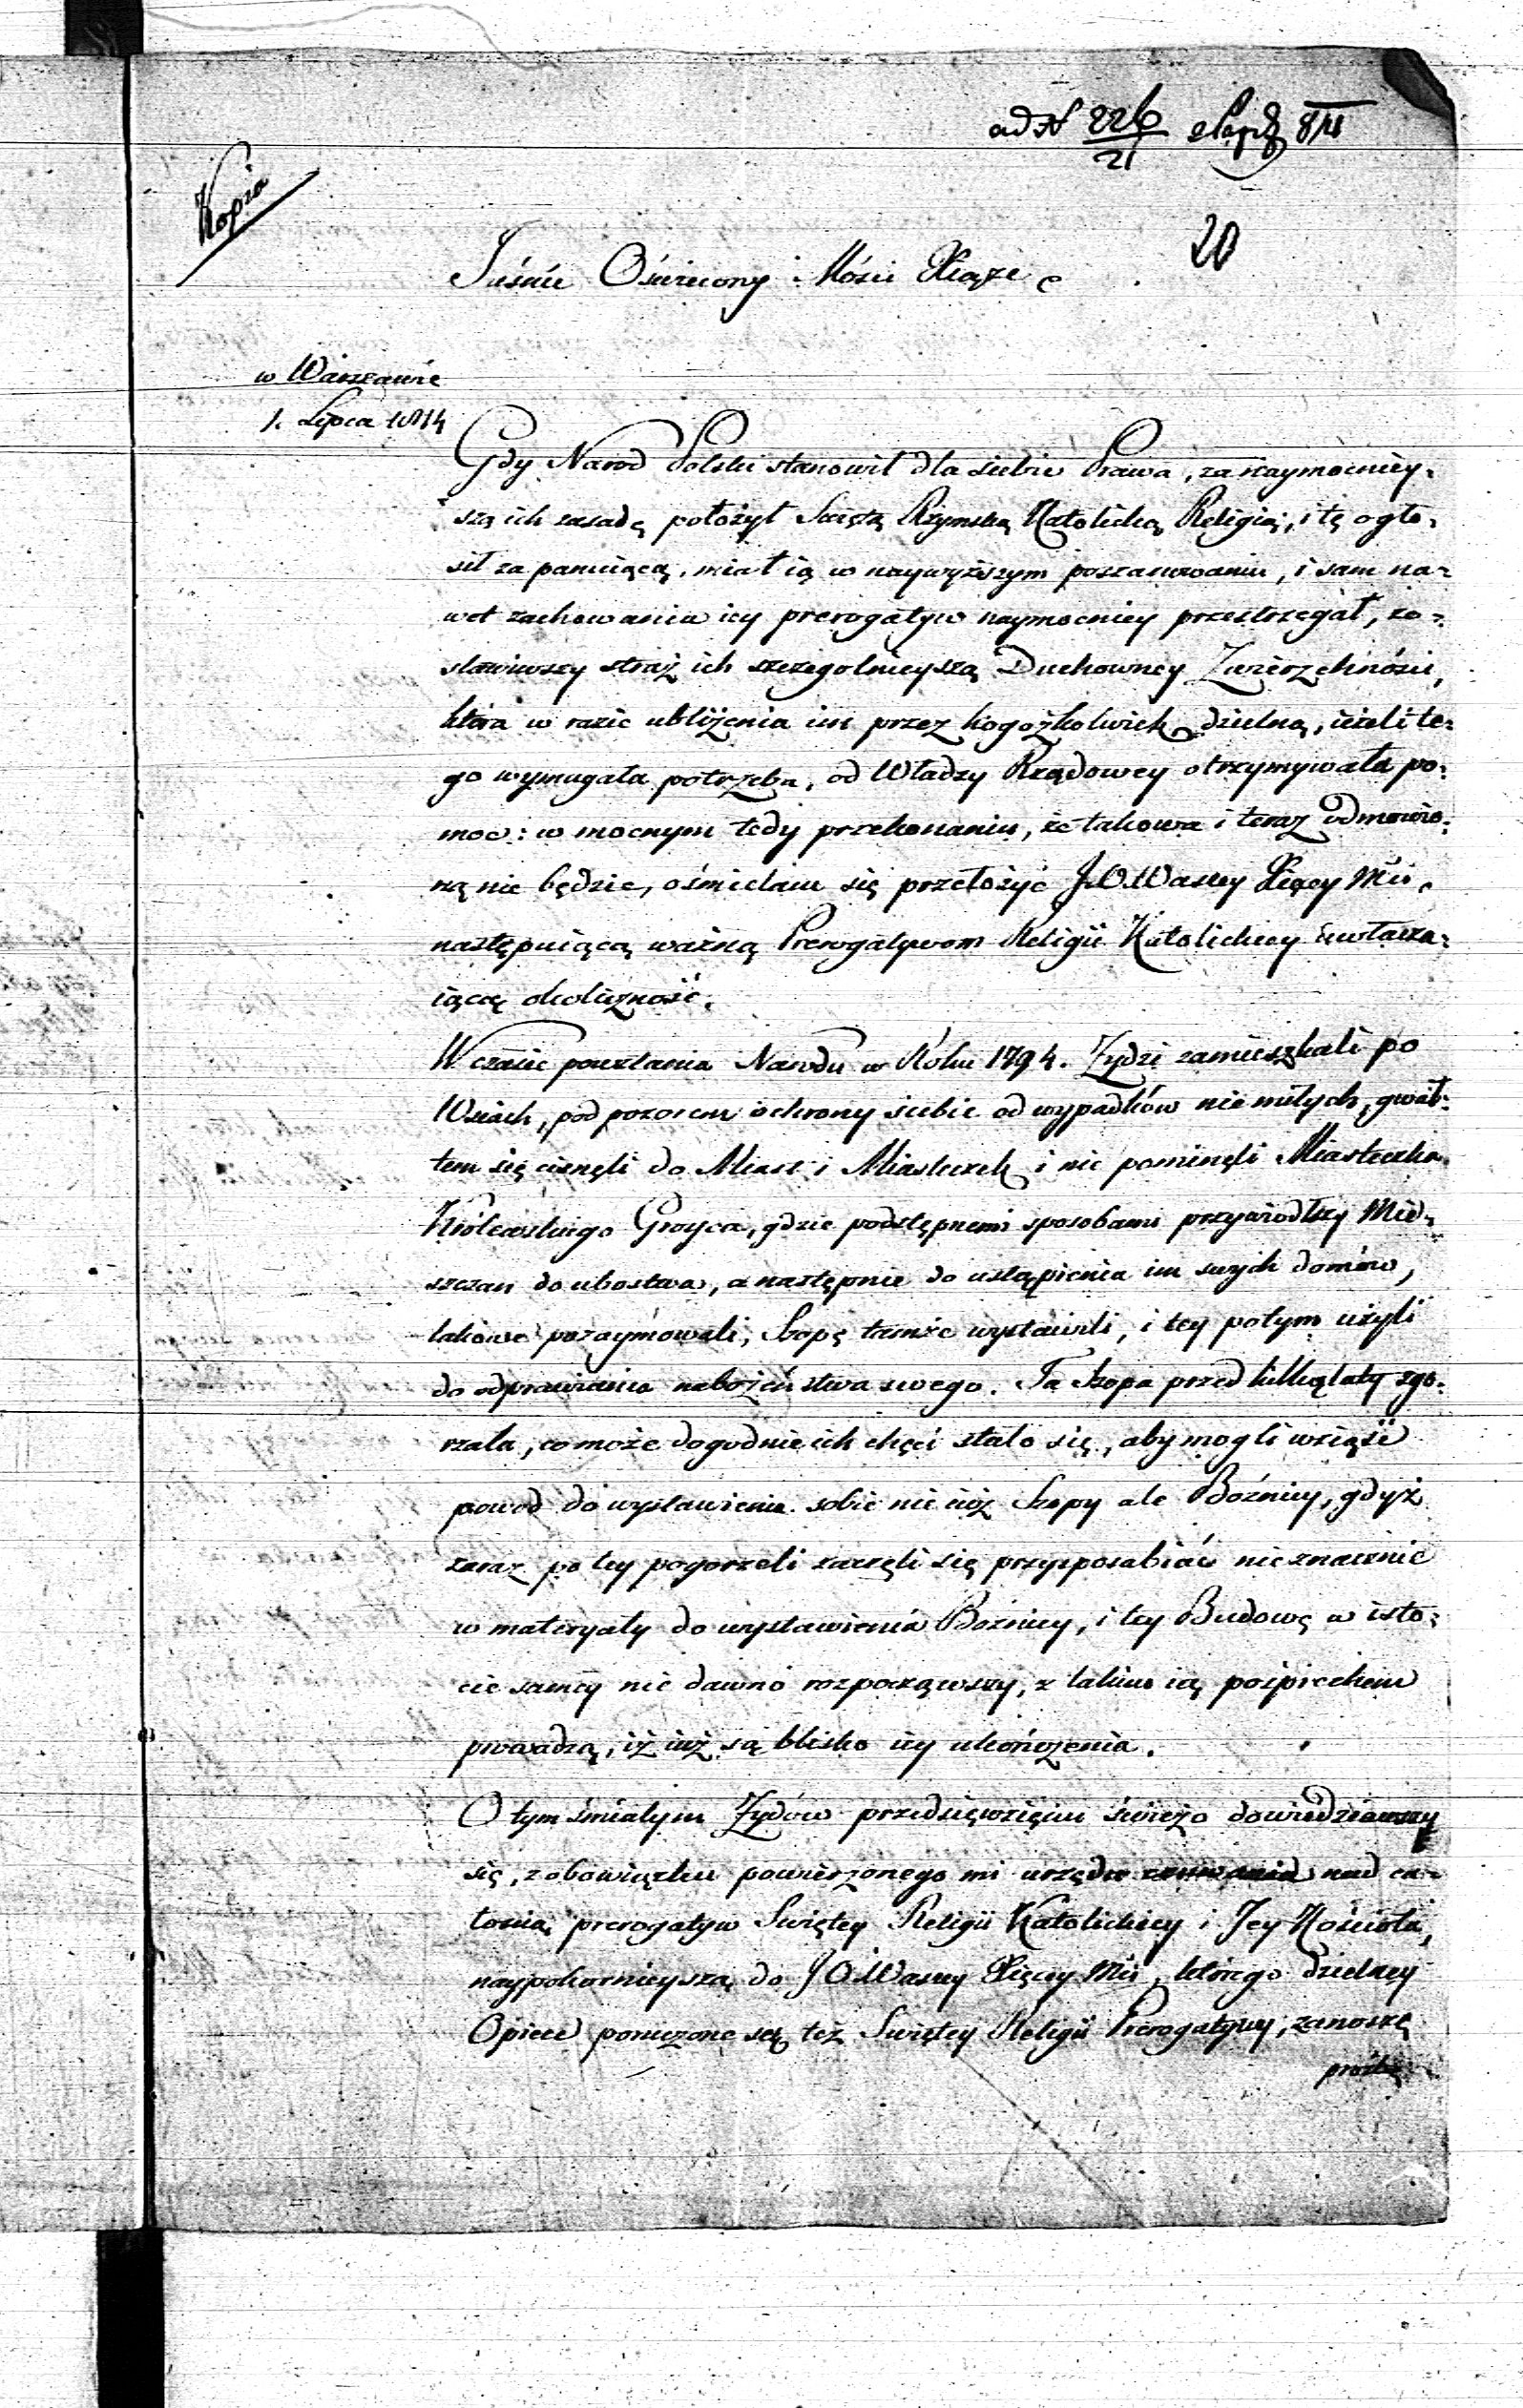 ad N 226/21
Kopia
20
Jaśnie Oświecony Mości Xiąże
w Warszawie
1. Lipca 1814
Gdy Narod Polski stanowił dla siebie Prawa, za naymocniey-
szą ich zasadę położył Swiętą Rzymską Katolicką Religią, i tę ogło-
sił za panuiącą, miał ią w naywyższym poszanowaniu, i sam na-
wet zachowania iey prerogatyw naymocniey przestrzegał, zo-
stawiwszy straż ich szczegolnieyszą Duchowney Zwierzchności,
która w razie ubliżenia im przez kogożkolwiek dzielną, ieżeli te-
go wymagała potrzeba, od Władzy Rządowey otrzymywała po-
moc: w mocnym tedy przekonaniu, że takowa i teraz odmowio-
ną nie będzie, ośmielam się przełożyć J.O. Waszey Xięcey Mci,
następuiącą ważną Prerogatywom Religii Katolickiey uwłacza-
iącą okoliczność.
W czasie powstania Narodu w Roku 1794. Zydzi zamieszkali po
Wsiach, pod pozorem ochrony siebie od wypadków nie miłych, gwał-
tem się cisnęli do Miast i Miasteczek i nie pominęli Miasteczka
Królewskiego Groyca, gdzie podstępnemi sposobami przywiodłszy Mie-
szczan do ubostwa, a następnie do ustąpienia im swych domów,
takowe pozaymowali, Szopę tamże wystawili, i tey potym użyli
do odprawiania nabożeństwa swego. Ta Szopa przed kilką laty zgo-
rzała, co może dogodnie ich chęci stało się, aby mogli wziąść
powod do wystawienia sobie nie iuż Szopy ale Bożnicy, gdyż
zaraz po tey pogorzeli zaczęli się przysposabiać nieznacznie
w materyały do wystawienia Bożnicy, i tey Budowę w isto-
cie samey nie dawno rozpocząwszy, z takim ią pośpiechem
prowadzą, iż iuż są blisko iey ukończenia.
O tym śmiałym Zydów przedsięwzięciu świeżo dowiedziawszy
się, z obowiązku powierzonego mi urzędu czuwania nad ca-
łością prerogatyw Swiętey Religii Katolickiey i Jey Kościoła,
naypokornieyszą do J O. Waszey Xięcey Mci, którego dzielney
Opiece poruczone są też Swiętey Religii Prerogatywy, zanoszę
prośbę